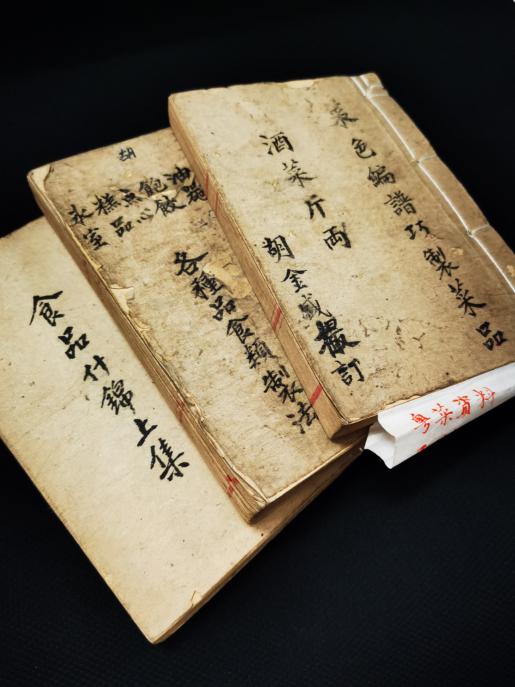 菜色編譜巧製菜品
酒菜斤両
胡金盛撮訂
胡
飽餃
点心
糕品
氷室
各種品食類製法
食品什錦上集
粵菜資料